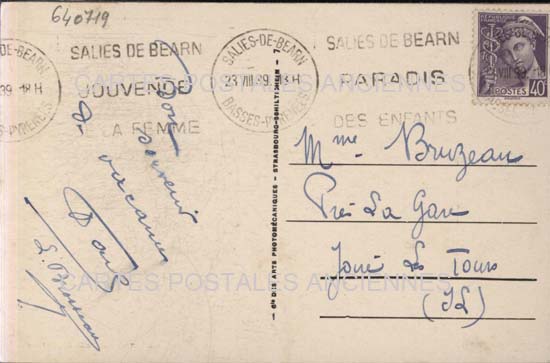 640719
SALIES DE BEARN
JOUVENCE
DE LA FEMME
SALIES-DE-BEARN
23 VIII 39 18 H
BASSES-PYRENEES
SALIES DE BEARN
PARADIS
DES ENFANTS
RÉPUBLIQUE FRANÇAISE
POSTES 40
39 -18 H
CARTES POSTALES ANCIENNES
Bon
souvenir
de vacances
Cie DES ARTS PHOTOMÉCANIQUES - STRASBOURG-SCHILTIGHEIM - 7
Mme Bruzeau
Près La Gare
Joué Les Tours
(IL)
CARTES POSTALES ANCIENNES